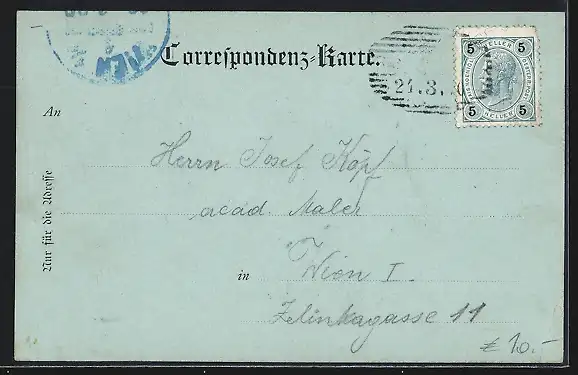 WIEN
Correspondenz-Karte.
21.3.
5 HELLER 5
5 HELLER 5
An
Herrn Josef Köpf
acad. Maler
in Wien I.
Zelinkagasse 11
Nur für die Adresse
€ 10.-